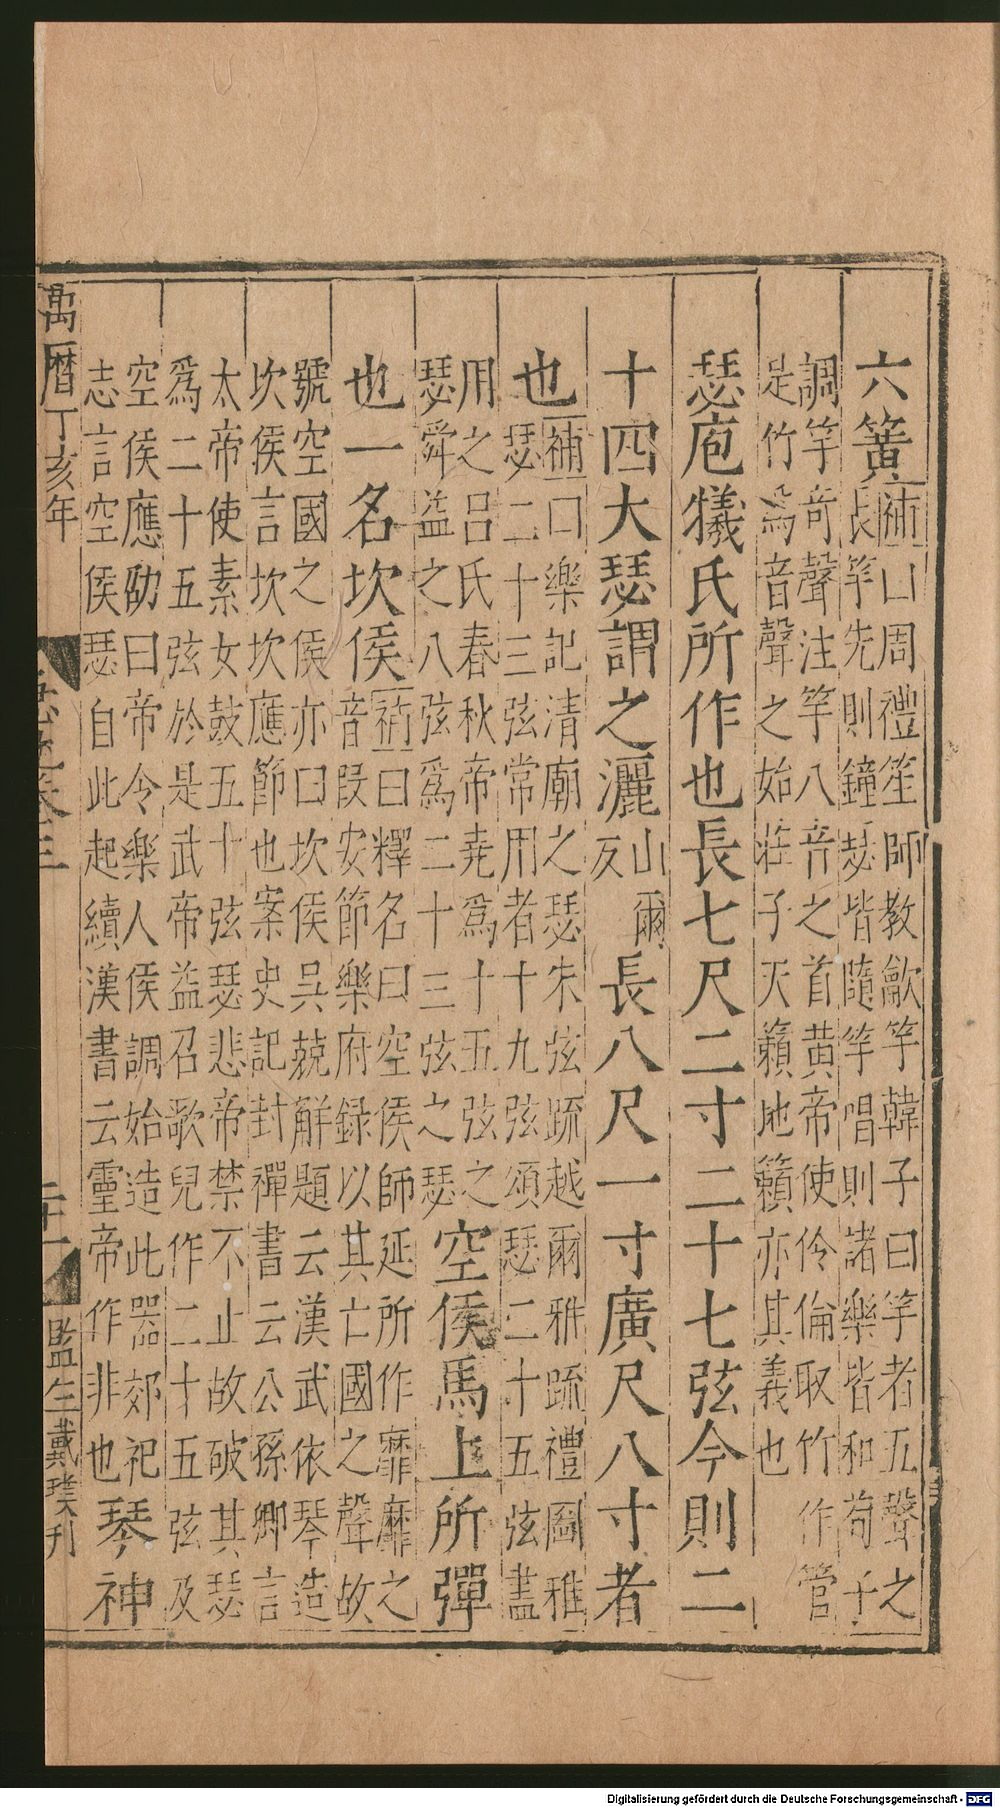 六簧補曰周禮笙師教龡竽韓子曰竽者五聲之
長竽先則鐘瑟皆隨竽唱則諸樂皆和荀子
調竽竒聲注竽八音之首黄帝使伶倫取竹作管
是竹爲音聲之始莊子天籟地籟亦其義也
瑟庖犧氏所作也長七尺二寸二十七弦今則二
十四大瑟謂之灑山爾
反長八尺一寸廣尺八寸者
也補曰樂記清廟之瑟朱弦疏越爾雅疏禮圖雅
瑟二十三弦常用者十九弦頌瑟二十五弦盡
用之吕氏春秋帝堯爲十五弦之
瑟舜益之八弦爲二十三弦之瑟空侯馬上所彈
也一名坎侯補曰釋名曰空侯師延所作靡靡之
音段安節樂府録以其亡國之聲故
號空國之侯亦曰坎侯吳兢解題云漢武依琴造
坎侯言坎坎應節也案史記封禪書云公孫卿言
太帝使素女鼓五十弦瑟悲帝禁不止故破其瑟
爲二十五弦於是武帝益召歌兒作二十五弦及
空侯應劭曰帝令樂人侯調始造此器郊祀
志言空侯瑟自此起續漢書云靈帝作非也琴神
萬曆丁亥年
卷之三
二十一
監生戴璞刋
Digitalisierung gefördert durch die Deutsche Forschungsgemeinschaft - DFG